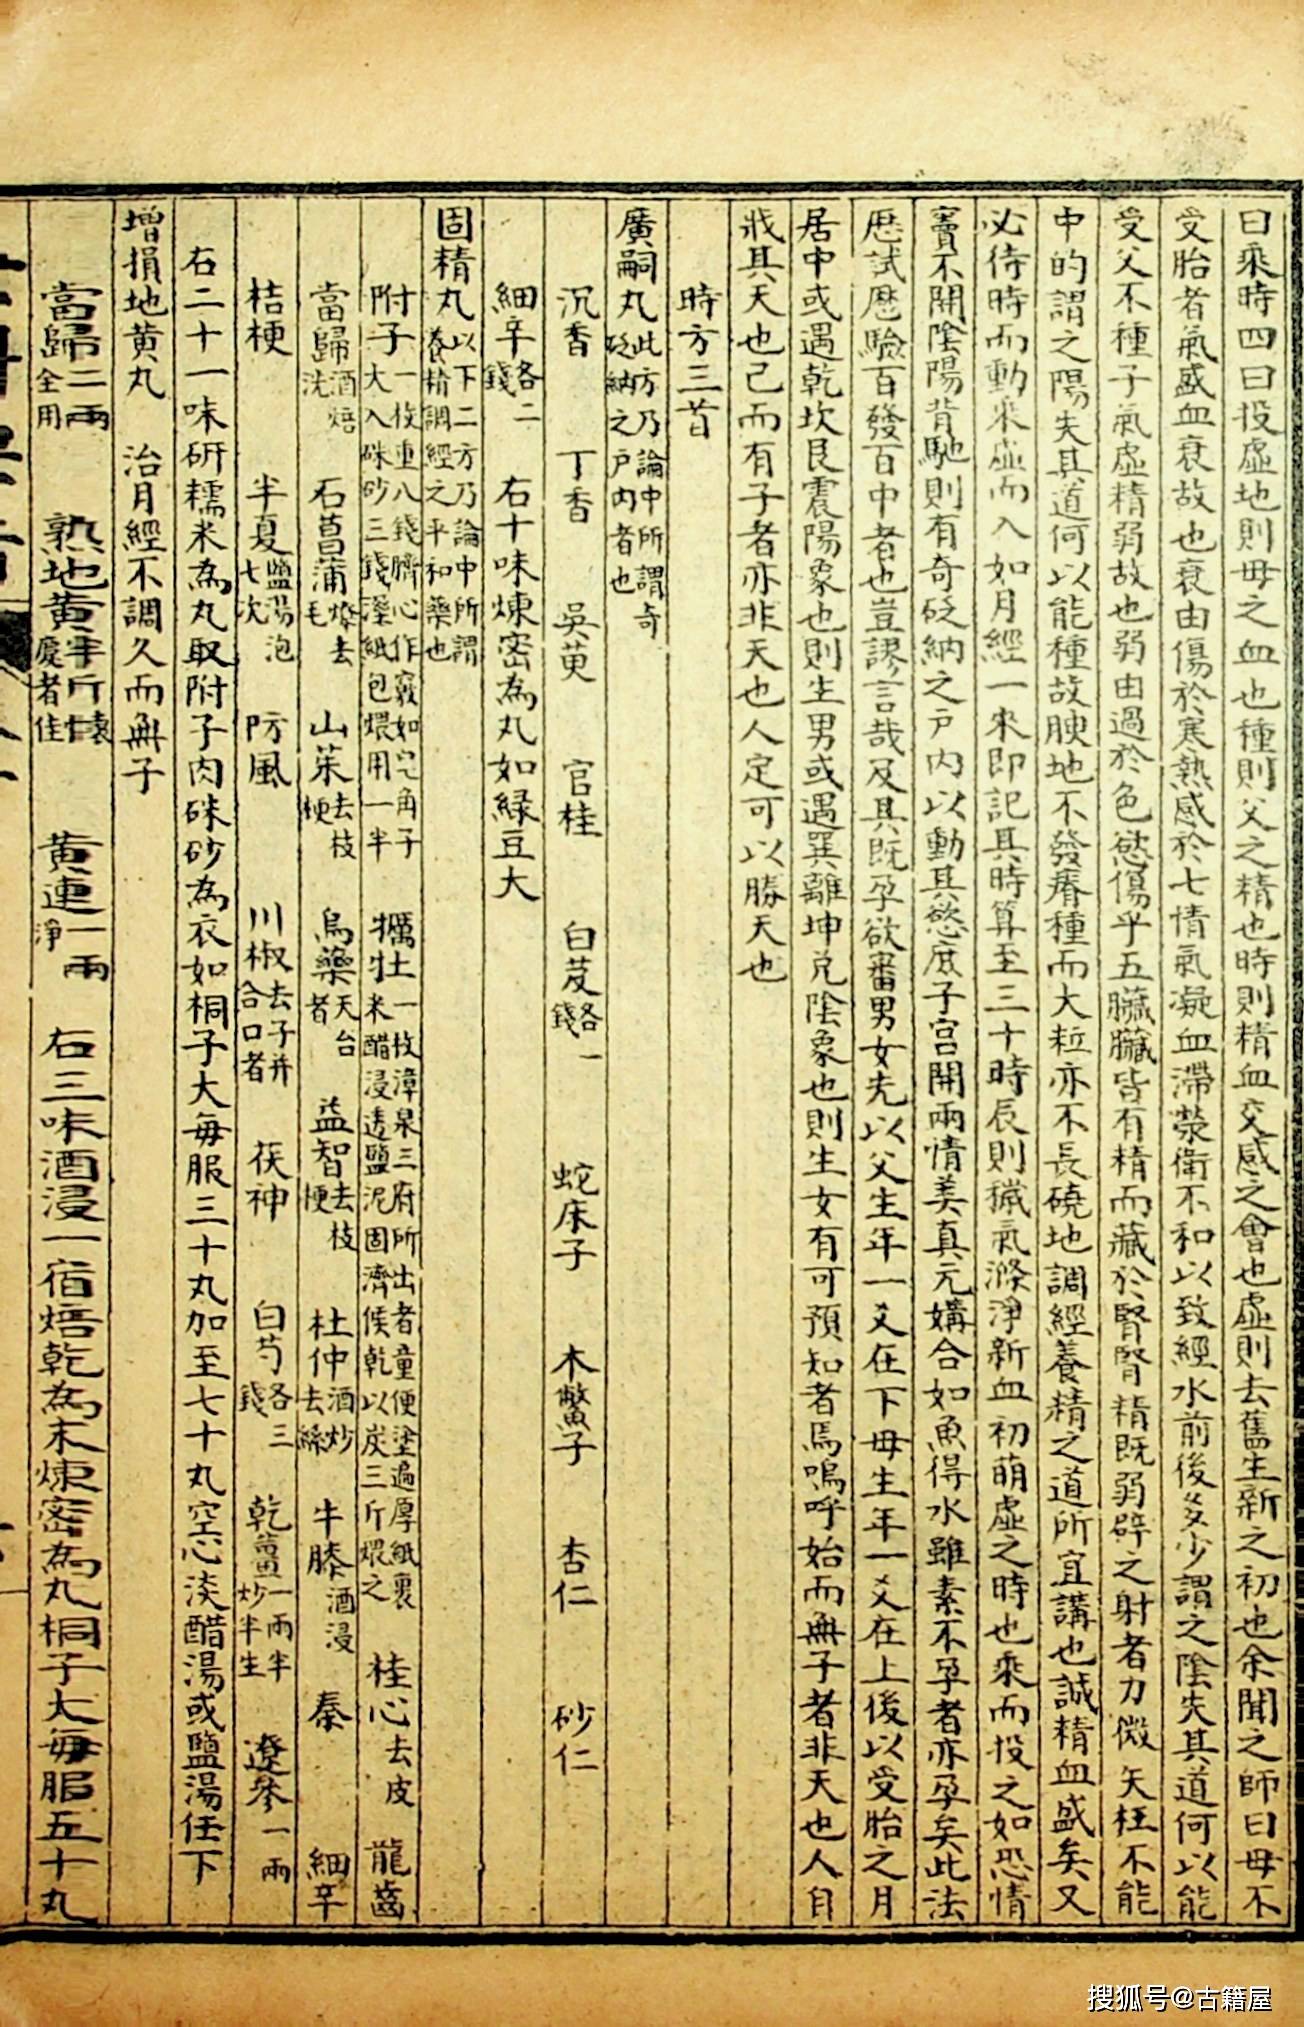 曰乘時四曰投虛地則母之血也種則父之精也時則精血交感之會也虛則去舊生新之初也余聞之師曰母不
受胎者氣盛血衰故也衰由傷於寒熱感於七情氣凝血滯荣衛不和以致經水前後多少謂之陰失其道何以能
受父不種子氣虛精弱故也弱由過於色慾傷乎五臟臟皆有精而藏於腎腎精既弱辟之射者力微矢枉不能
中的謂之陽失其道何以能種故腴地不發瘠種而大粒亦不長磽地調經養精之道所宜講也誠精血盛矣又
必待時而動乘虛而入如月經一來即記其時算至三十時辰則穢氣滌淨新血初萌虛之時也乘而投之如恐情
竇不開陰陽背馳則有奇砭納之戶內以動其慾庶子宮開兩情美真元媾合如魚得水雖素不孕者亦孕矣此法
歷試歷驗百發百中者也豈謬言哉及其既孕欲審男女先以父生年一爻在下母生年一爻在上後以受胎之月
居中或遇乾坎艮震陽象也則生男或遇巽離坤兌陰象也則生女有可預知者焉嗚呼始而無子者非天也人自
戕其天也已而有子者亦非天也人定可以勝天也
時方三首
廣嗣丸此方乃論中所謂奇砭納之戶內者也
沉香 丁香 吳萸 官桂 白芨各一錢 蛇床子 木鱉子 杏仁 砂仁
細辛各二錢 右十味煉密為丸如綠豆大
固精丸以下二方乃論中所謂養精調經之平和藥也
附子一枚重八錢臍心作竅如皂角子大入硃砂三錢溼紙包煨用一半 牡蠣一枚漳泉三府所出者童便塗遍厚紙裏米醋浸透鹽泥固濟候乾以炭三斤煨之 桂心去皮 龍齒
當歸酒焙洗 石菖蒲燎去毛 山茱去枝梗 烏藥天台者 益智去枝梗 杜仲酒炒去絲 牛膝酒浸 秦 細辛
桔梗 半夏鹽湯泡七次 防風 川椒去子并合口者 茯神 白芍各三錢 乾薑一兩半炒半生 遼參一兩
右二十一味研糯米為丸取附子肉硃砂為衣如桐子大每服三十丸加至七十丸空心淡醋湯或鹽湯任下
增損地黃丸 治月經不調久而無子
當歸二兩全用 熟地黃半斤懷慶者佳 黃連一兩淨 右三味酒浸一宿焙乾為末煉密為丸桐子大每服五十丸
搜狐号@古籍屋